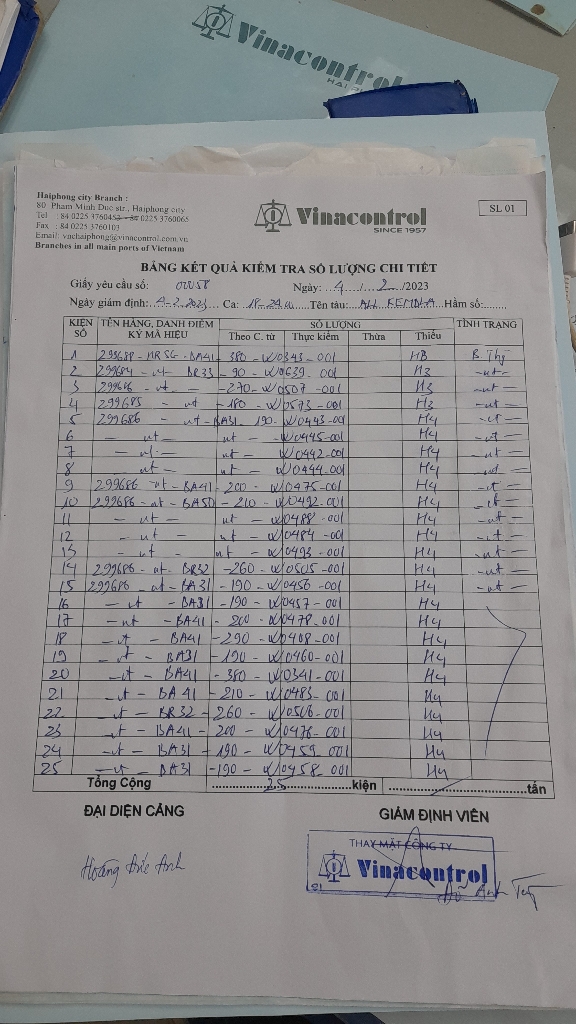 Vinacontrol
Haiphong city Branch :
80 Pham Minh Duc str., Haiphong city
Tel : 84 0225 3760453 - 84 0225 3760065
Fax : 84 0225 3760103
Email: vnchaiphong@vinacontrol.com.vn
Branches in all main ports of Vietnam
Vinacontrol
SINCE 1957
SL 01
BẢNG KẾT QUẢ KIỂM TRA SỐ LƯỢNG CHI TIẾT
Giấy yêu cầu số: Ngày: 4 / 2 /2023
Ngày giám định: 4-2-2023 Ca: 18-24 Tên tàu: Hầm số:
KIỆN SỐ TÊN HÀNG, DANH ĐIỂM KÝ MÃ HIỆU SỐ LƯỢNG TÌNH TRẠNG
Theo C. từ Thực kiểm Thừa Thiếu
1 299688 - HRSG - BA41 - 380 - W0343-001 HB
2 299684 - nt - BR33 - 90 - W0639-001 H3 -nt-
3 299686 - nt - -270 - W0507-001 H3 -nt-
4 299685 - nt - 180 - W0573-001 H3 -nt-
5 299686 - nt - BA31 - 190 - W0443-001 H4 -nt-
6 - nt - nt - W0445-001 H4 -nt-
7 - nt - nt - W0442-001 H4 -nt-
8 - nt - nt - W0444-001 H4 -nt-
9 299686 - nt - BA41 - 200 - W0475-001 H4 -nt-
10 299686 - nt - BA50 - 210 - W0492-001 H4 -nt-
11 - nt - nt - W0488-001 H4 -nt-
12 - nt - nt - W0484-001 H4 -nt-
13 - nt - nt - W0493-001 H4 -nt-
14 299686 - nt - BR32 - 260 - W0505-001 H4 -nt-
15 299686 - nt - BA31 - 190 - W0456-001 H4 -nt-
16 - nt - BA31 - 190 - W0457-001 H4
17 - nt - BA41 - 200 - W0478-001 H4
18 - nt - BA41 - 290 - W0408-001 H4
19 - nt - BA31 - 190 - W0460-001 H4
20 - nt - BA41 - 380 - W0341-001 H4
21 - nt - BA41 - 210 - W0483-001 H4
22 - nt - BR32 - 260 - W0506-001 H4
23 - nt - BA41 - 200 - W0476-001 H4
24 - nt - BA31 - 190 - W0459-001 H4
25 - nt - BA31 - 190 - W0458-001 H4
Tổng Cộng 25 kiện tấn
ĐẠI DIỆN CẢNG GIÁM ĐỊNH VIÊN
THAY MẶT CÔNG TY
Vinacontrol
Hoàng Đức Anh